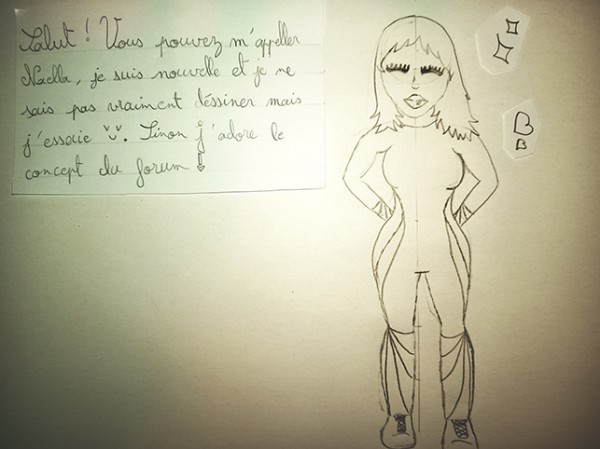 Salut ! Vous pouvez m'appeller
Naella, je suis nouvelle et je ne
sais pas vraiment déssiner mais
j'essaie ِ. Sinon j'adore le
concept du forum !
B
B